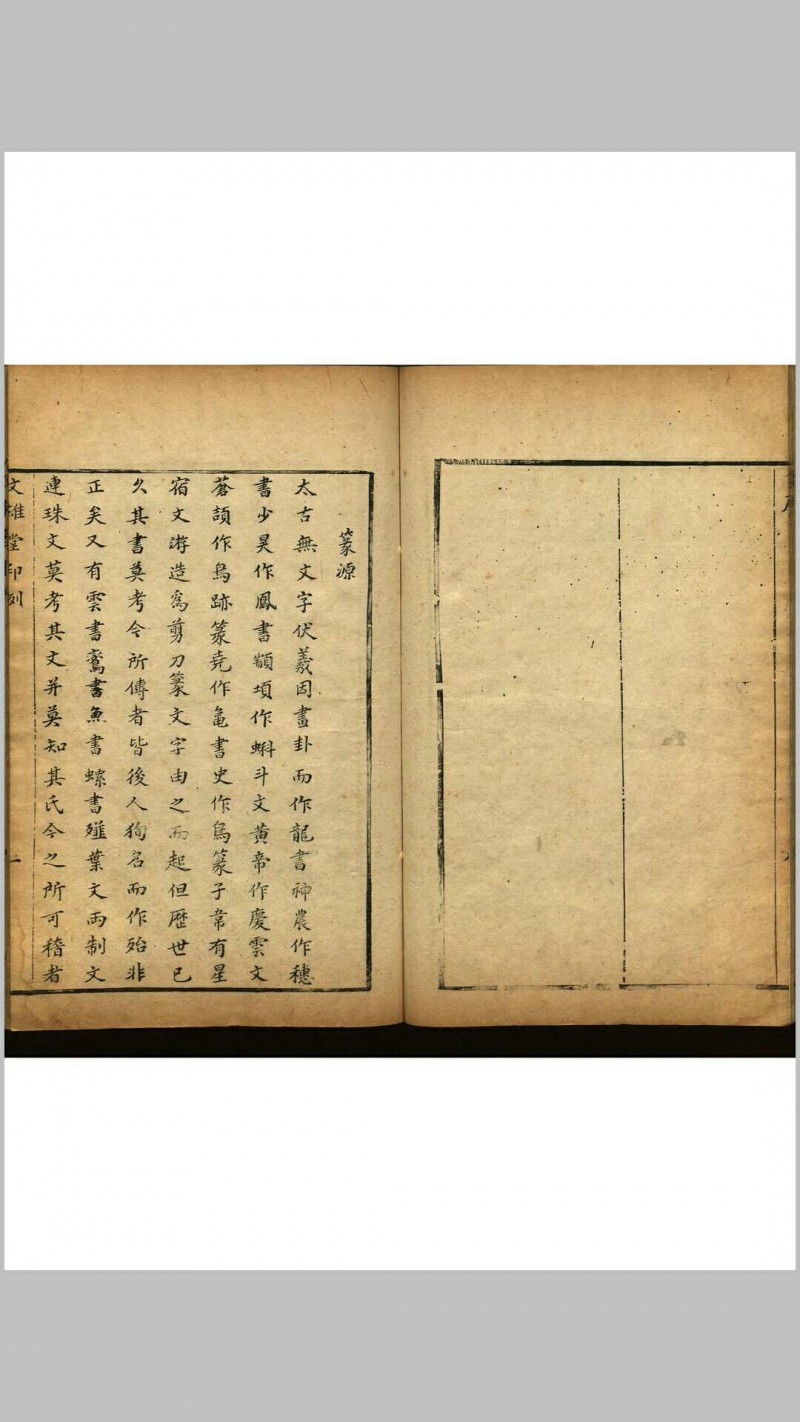 篆源
太古無文字伏羲因畫卦而作龍書神農作穗
書少昊作鳳書顓頊作蝌斗文黄帝作慶雲文
蒼頡作鳥跡篆堯作龜書史作鳥篆子韋有星
宿文游造爲剪刀篆文字由之而起但歷世已
久其書莫考今所傳者皆後人狥名而作殆非
正矣又有雲書鸞書魚書螺書薤葉文雨制文
連珠文莫考其文并莫知其氏今之所可稽者
文雄堂印刻